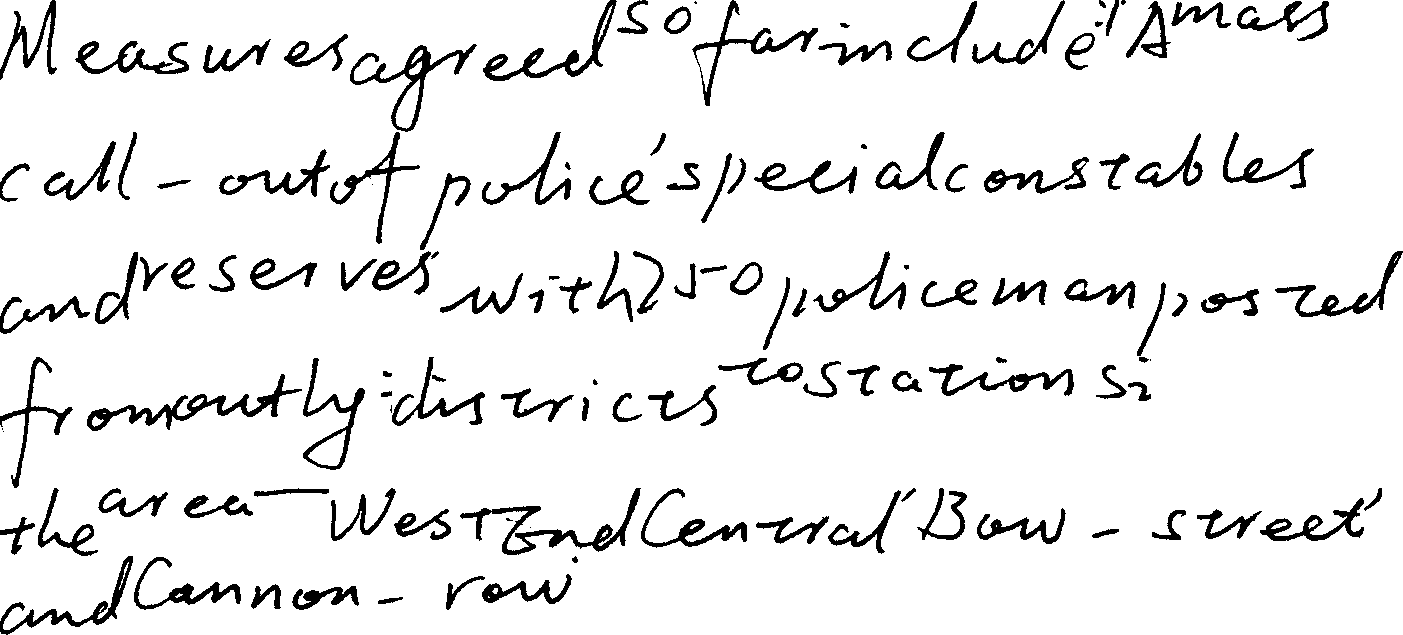 Measures agreed so far include: 1 A mass
call-out of police, special constables
and reserves with 250 policeman posted
from outly districts to stations i
the area - West End Central, Bow-street,
and Cannon-row.